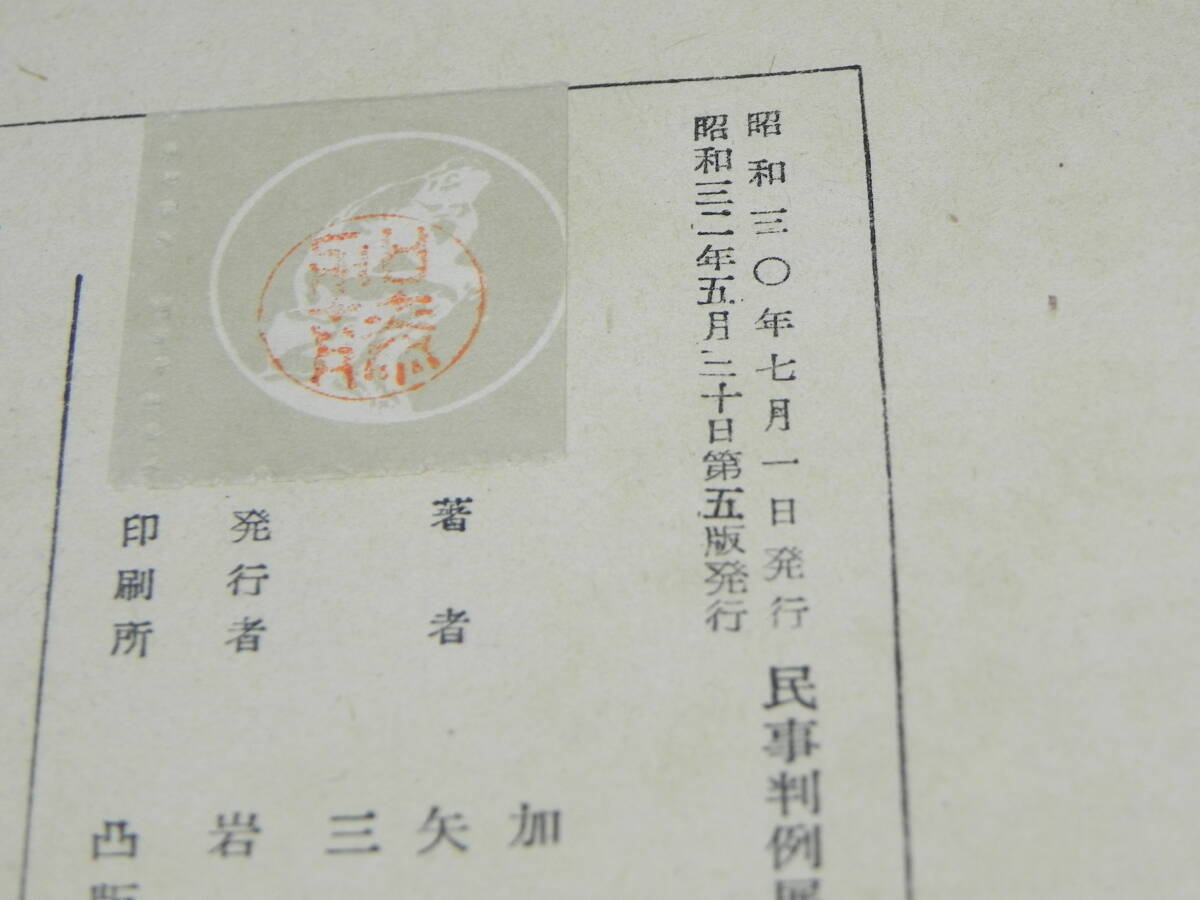 昭和三〇年七月一日発行
昭和三二年五月二十日第五版発行
民事判例
著者
加
矢
三
発行者
岩
印刷所
凸版